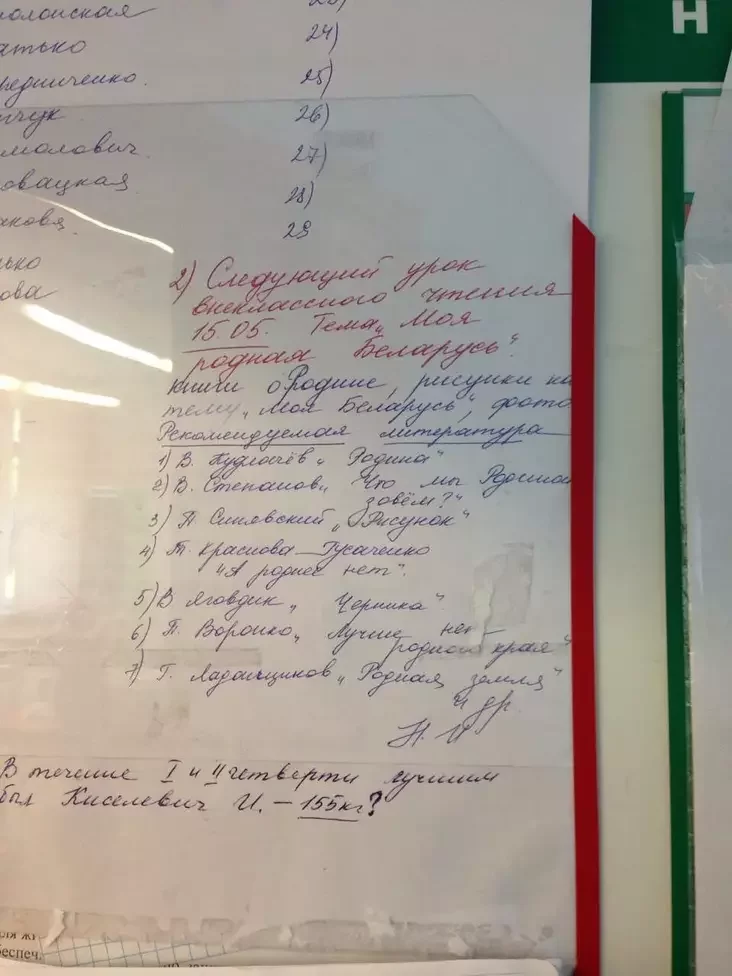 24)
25)
26)
27)
28)
29
Н
2) Следующий урок
внеклассного чтения
15.05. Тема „Моя
родная Беларусь“.
книги о Родине, рисунки на
тему „Моя Беларусь“, фото
Рекомендуемая литература
1) В. „Родина“
2) В. Степанов „Что мы Родиной
зовём?“
3) П. Синявский „Рисунок“
4) Т. Краснова-Гусаченко
„А роднее нет“.
5) В Яговдик „Черника“
6) П. Воронко „Лучше нет
родного края“
7) Г. Ладонщиков „Родная земля“
и др.
В течение I и II четверти лучшим
был Киселевич И. – 155кг?